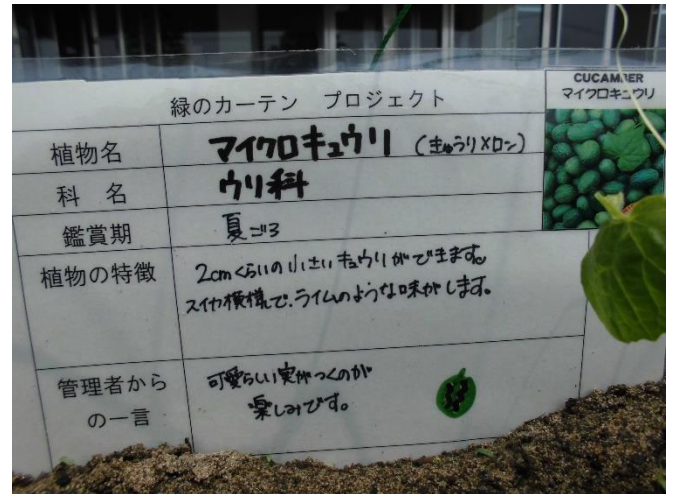 緑のカーテン プロジェクト
CUCAMBER
マイクロキュウリ
植物名 マイクロキュウリ (きゅうり×ロン)
科 名 ウリ科
鑑賞期 夏ごろ
植物の特徴 2cmくらいの小さいキュウリができます。
スイカ模様で、ライムのような味がします。
管理者から
の一言
可愛らしい実がつくのが
楽しみです。